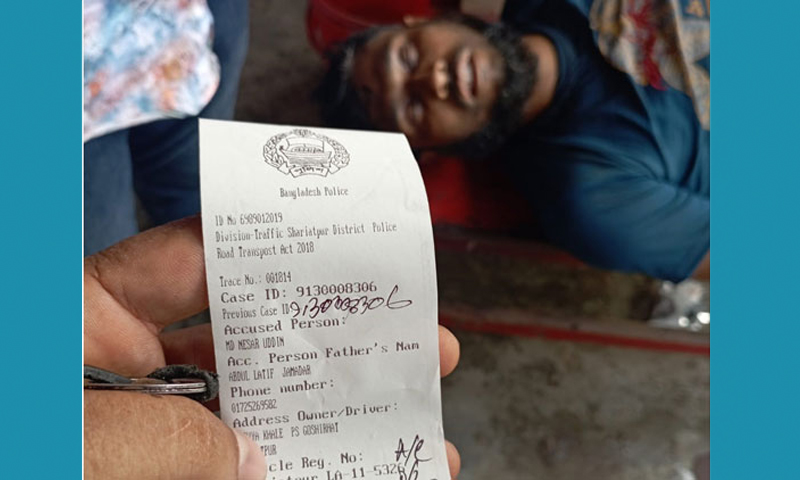 Bangladesh Police
ID No 6989012019
Division-Traffic Shariatpur District Police
Road Transpost Act 2018
Trace No.: 001814
Case ID: 9130008306
Previous Case ID 9130008306
Accused Person:
MD NESAR UDDIN
Acc. Person Father's Nam
ABDUL LATIF JAMADAR
Phone number:
01725269582
Address Owner/Driver:
KHALE PS GOSHIRHAT
PUR
cle Reg. No: A/C
LA-11-5326